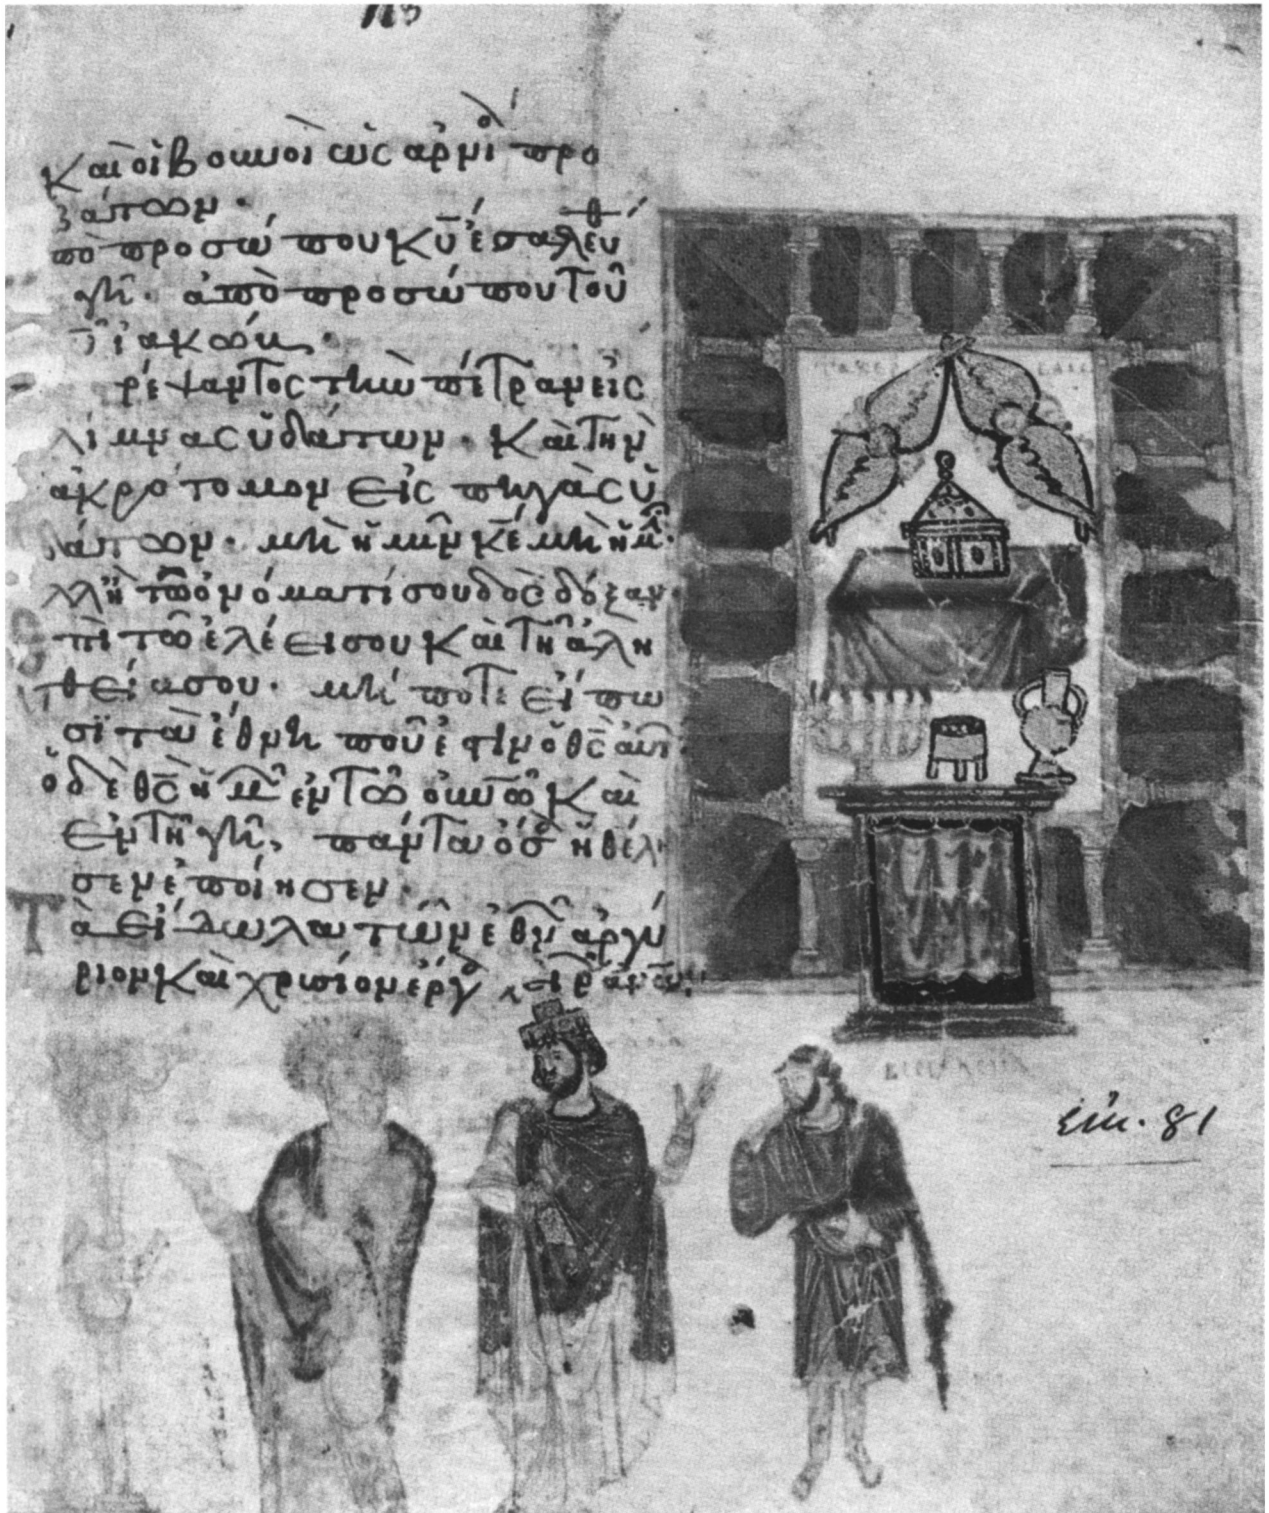 Καὶ οἱ βουνοὶ ὡς ἀρνία προ
βάτων·
πὸ προσώπου κ̅υ̅ ἐσαλεύθ
γῆ· ἀπὸ προσώπου τοῦ
ἰακώβ·
ρέψαντος τὴν πέτραν εἰς
λίμνας ὑδάτων· καὶ τὴν
ἀκρότομον εἰς πηγὰς ὑ
δάτων· μὴ ἡμῖν κ̅ε̅ μὴ ἡμ̑·
λλ' ἢ τῶ ὀνόματί σου δὸς δόξαν·
πὶ τῶ ἐλέει σου καὶ τῆ ἀλη
θεία σου· μή ποτε εἴπω
σϊ τὰ ἔθνη ποῦ ἐστιν ὁ θ̅ς̅ αὐτ
ὁ δὲ θ̅ς̅ ἡμ̑ ἐν τῶ οὐν̅ῶ καὶ
ἐν τῆ γῆ, πάντα ὅσ ἠθέλη
σεν ἐποίησεν·
Τ ὰ εἴδωλα τῶν ἐθν̑ ἀργύ
ριον καὶ χρυσίον ἔργ χειρ ἀν̅ων
εἰκ. 81